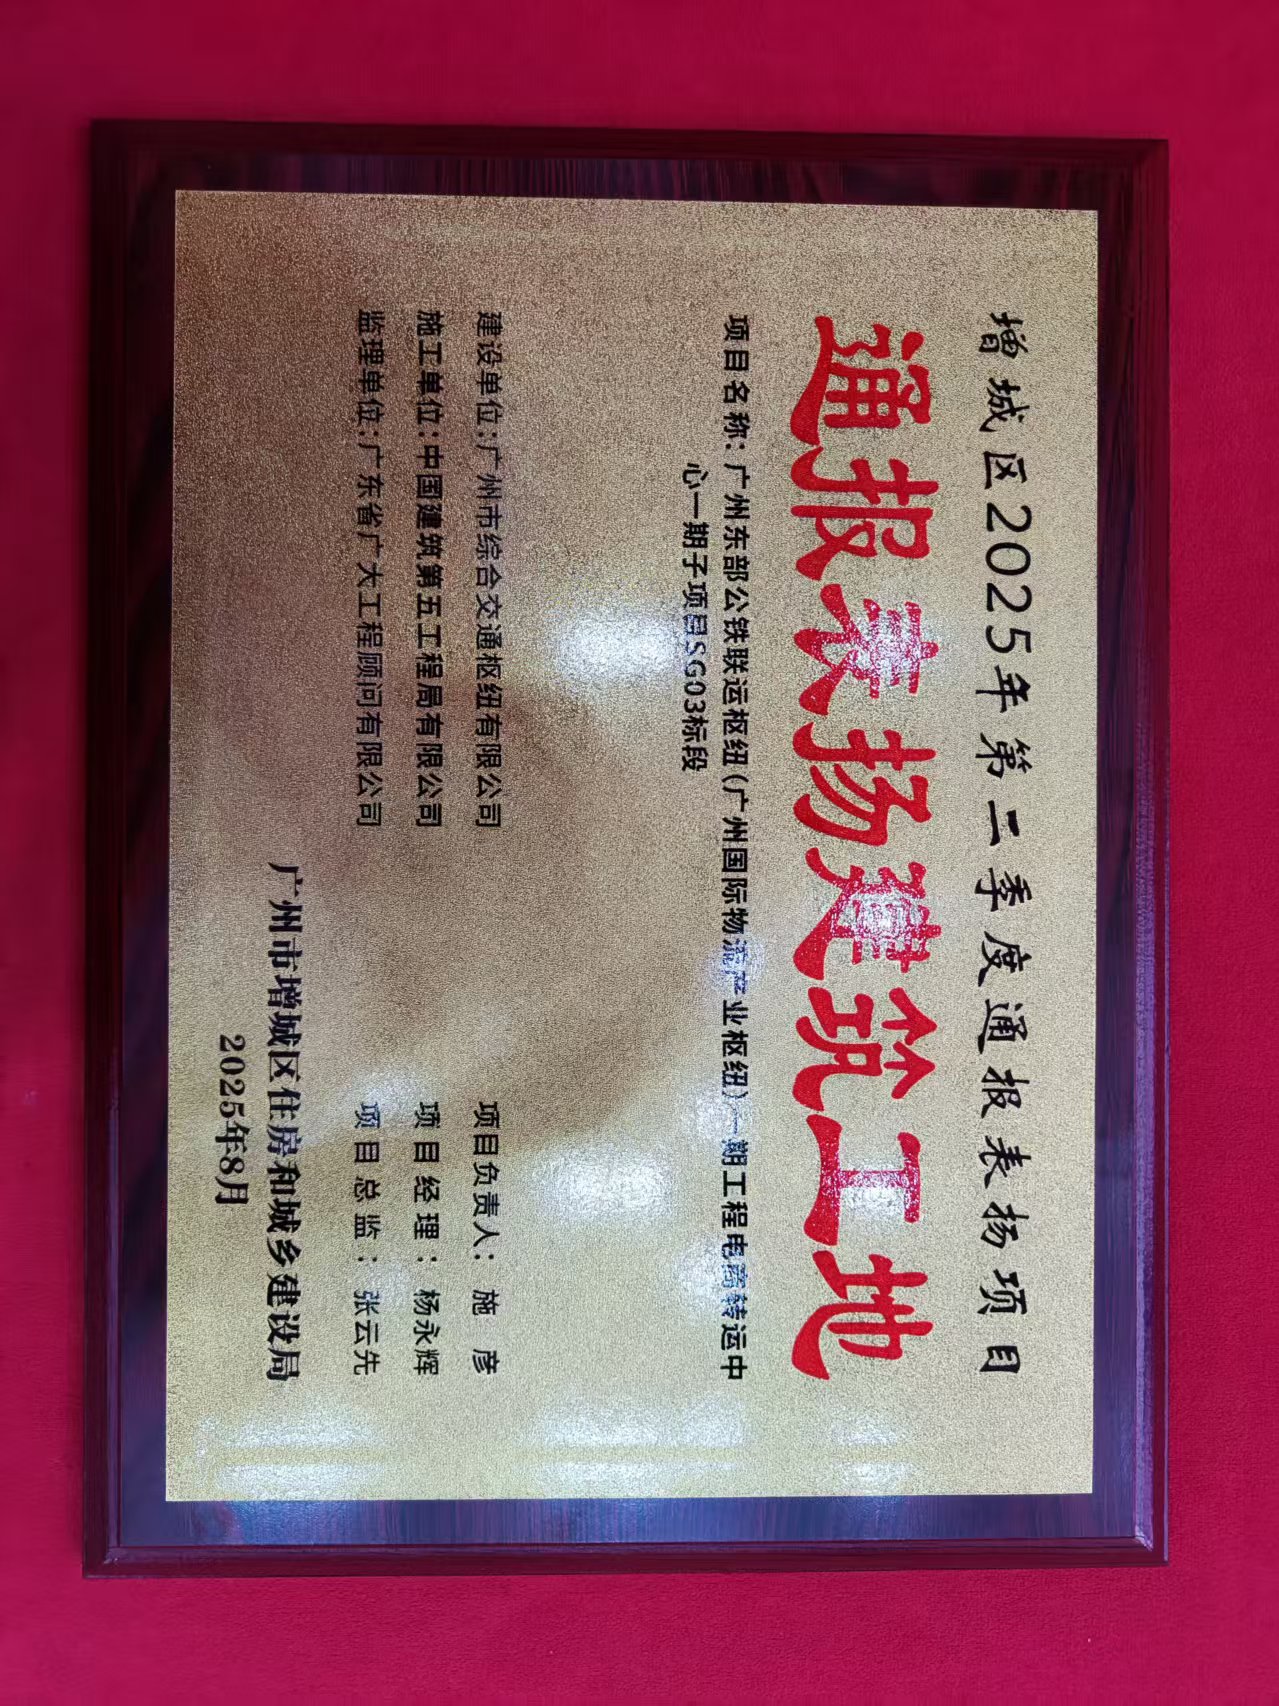 增城区2025年第二季度通报表扬项目
通报表扬建筑工地
项目名称：广州东部公铁联运枢纽（广州国际物流产业枢纽）一期工程电商转运中
心一期子项目SG03标段
建设单位：广州市综合交通枢纽有限公司 项目负责人：施 彦
施工单位：中国建筑第五工程局有限公司 项目经理：杨永辉
监理单位：广东省广大工程顾问有限公司 项目总监：张云先
广州市增城区住房和城乡建设局
2025年8月